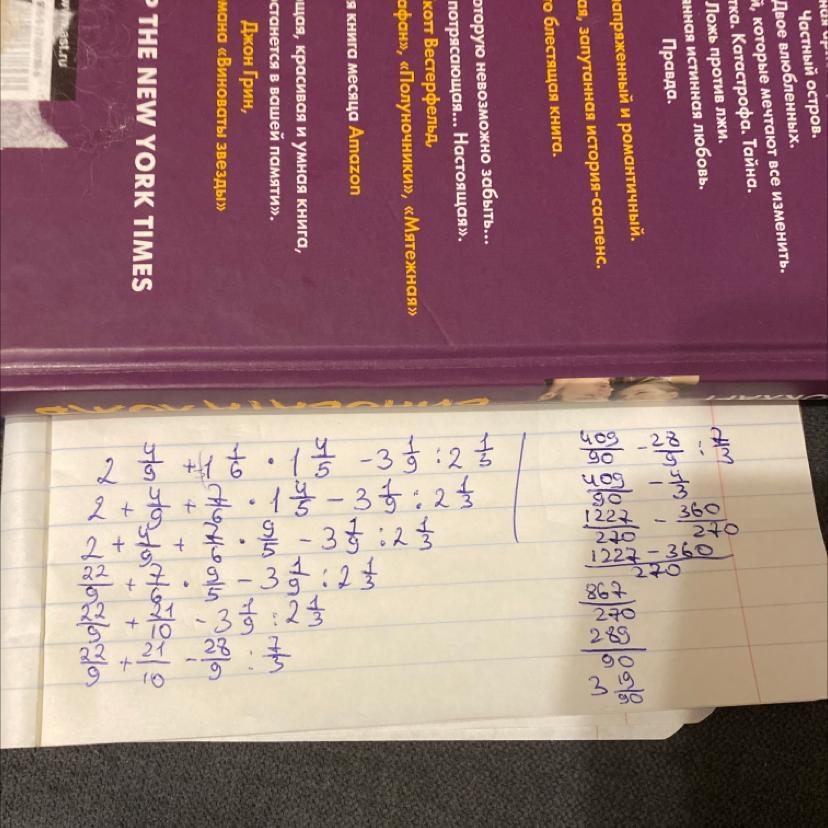 ная
Частный остров.
Двое влюбленных.
которые мечтают все изменить.
тка. Катастрофа. Тайна.
Ложь против лжи.
нная истинная любовь.
Правда.
апряженный и романтичный.
ая, запутанная история-саспенс.
о блестящая книга.
оторую невозможно забыть...
потрясающая... Настоящая».
котт Вестерфельд,
афан», «Полуночники», «Мятежная»
я книга месяца Amazon
щая, красивая и умная книга,
останется в вашей памяти».
Джон Грин,
мана «Виноваты звезды»
P THE NEW YORK TIMES
ast.ru
2 4/9 + 1 1/6 · 1 4/5 - 3 1/9 : 2 1/3
2 + 4/9 + 7/6 · 1 4/5 - 3 1/9 : 2 1/3
2 + 4/9 + 7/6 · 9/5 - 3 1/9 : 2 1/3
22/9 + 7/6 · 9/5 - 3 1/9 : 2 1/3
22/9 + 21/10 - 3 1/9 : 2 1/3
22/9 + 21/10 - 28/9 : 7/3
409/90 - 28/9 : 7/3
409/90 - 4/3
1227/270 - 360/270
1227-360/270
867/270
289/90
3 19/90